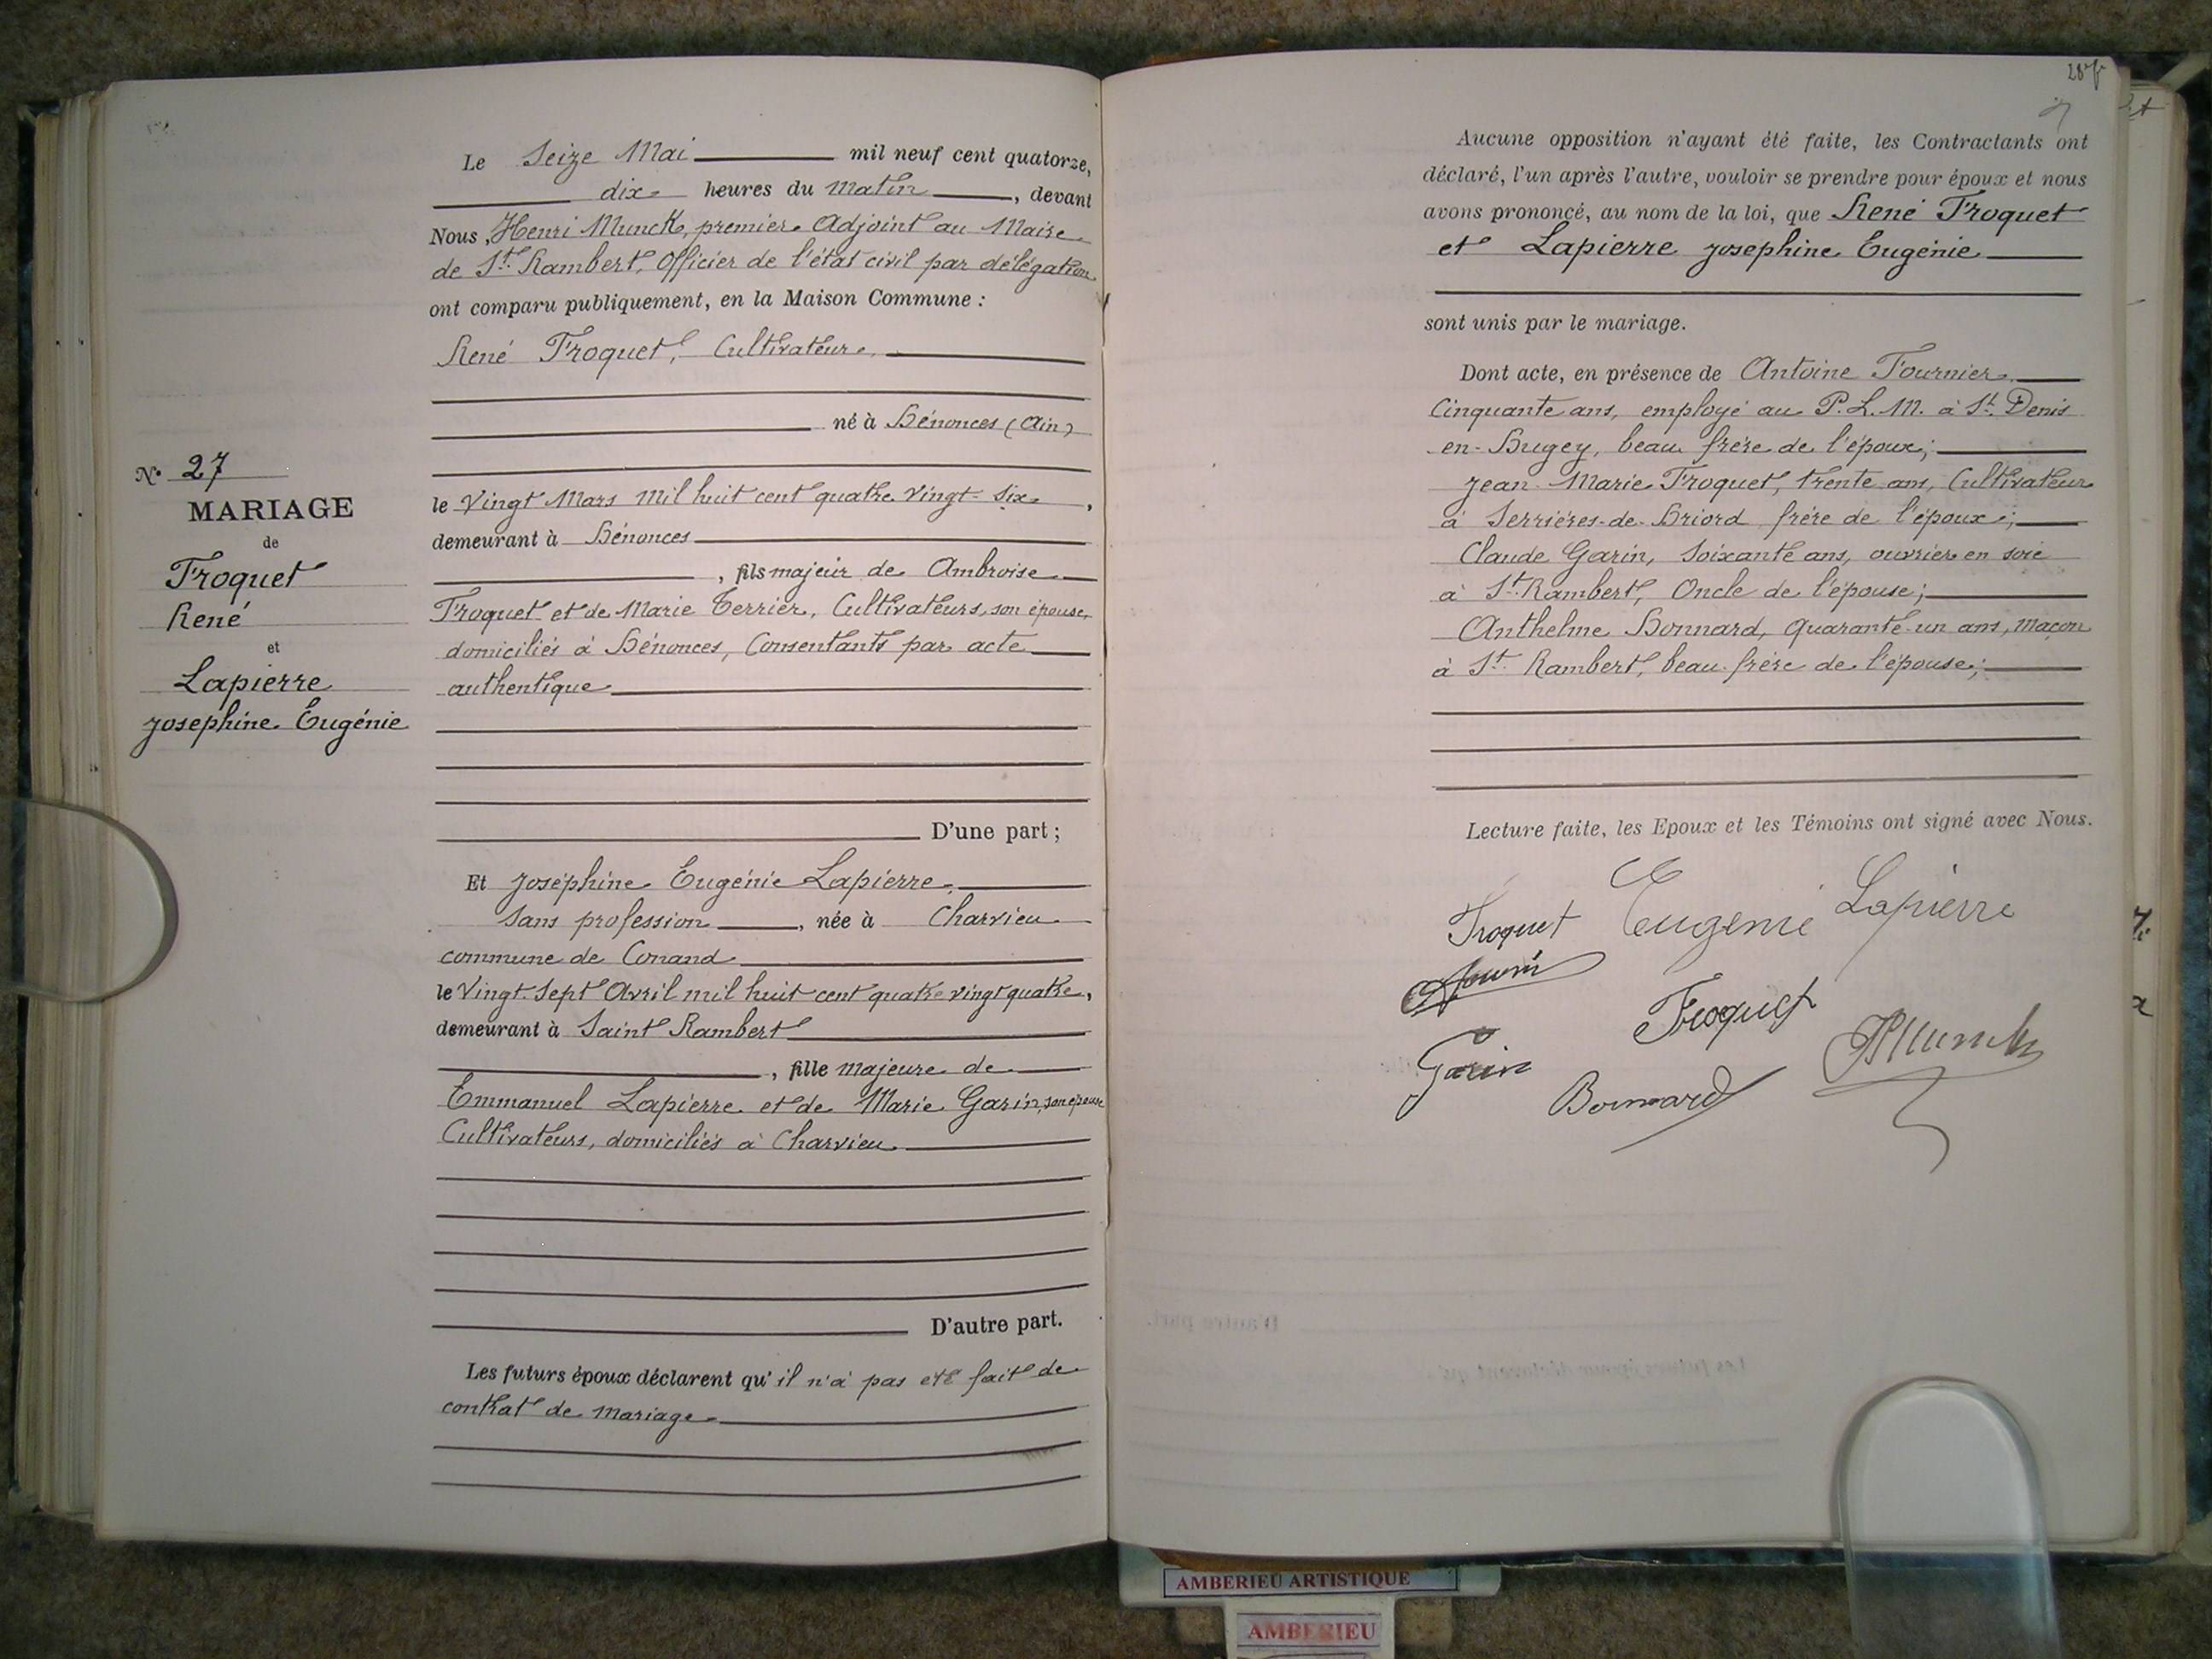 Le Seize Mai mil neuf cent quatorze,
dix heures du matin, devant
Nous, Henri Munck, premier Adjoint au Maire
de St. Rambert, Officier de l'état civil par délégation
ont comparu publiquement, en la Maison Commune :
René Froquet, Cultivateur,
né à Bénonces (Ain)
le Vingt Mars mil huit cent quatre vingt-six,
demeurant à Bénonces
, fils majeur de Ambroise
Froquet et de Marie Terrier, Cultivateurs, son épouse,
domiciliés à Bénonces, Consentants par acte
authentique
D'une part ;
Et Joséphine Eugénie Lapierre,
sans profession, née à Charvieu
commune de Conand
le Vingt-Sept Avril mil huit cent quatre vingt quatre,
demeurant à Saint Rambert
, fille majeure de
Emmanuel Lapierre et de Marie Garin, son épouse
Cultivateurs, domiciliés à Charvieu
D'autre part.
Les futurs époux déclarent qu'il n'a pas été fait de
contrat de mariage
N° 27
MARIAGE
de
Froquet
René
et
Lapierre
Josephine Eugénie
Aucune opposition n'ayant été faite, les Contractants ont
déclaré, l'un après l'autre, vouloir se prendre pour époux et nous
avons prononcé, au nom de la loi, que René Froquet
et Lapierre Josephine Eugénie
sont unis par le mariage.
Dont acte, en présence de Antoine Fournier
Cinquante ans, employé au P.L.M. à St. Denis
en-Bugey, beau frère de l'époux;
Jean-Marie Froquet, trente ans, Cultivateur
à Serrières-de-Briord, frère de l'époux;
Claude Garin, Soixante ans, ouvrier en soie
à St. Rambert, Oncle de l'épouse;
Anthelme Bonnard, Quarante-un ans, maçon
à St. Rambert, beau-frère de l'épouse;
Lecture faite, les Epoux et les Témoins ont signé avec Nous.
Froquet Eugenie Lapierre
Froquet
Garin
Bonnard
HMunck
AMBERIEU ARTISTIQUE
AMBERIEU